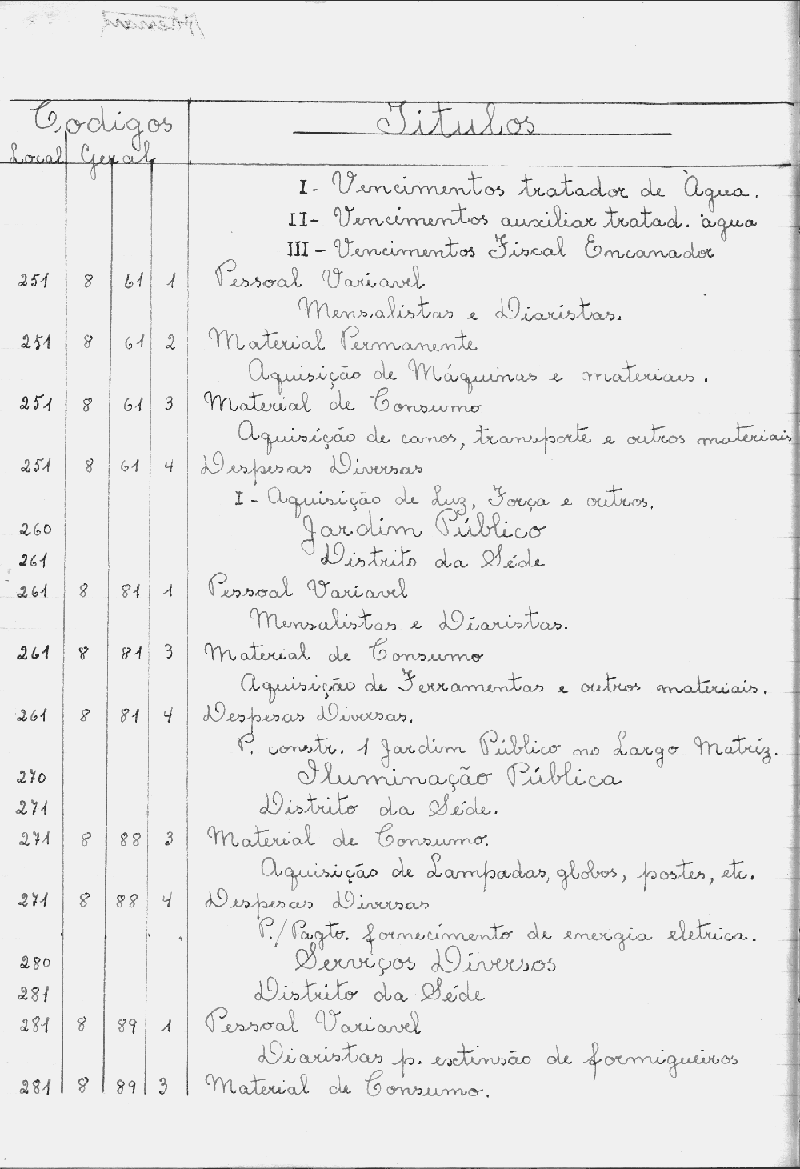 Codigos Titulos
Local Geral
I - Vencimentos tratador de Àgua.
II - Vencimentos auxiliar tratad. àgua
III - Vencimentos Fiscal Encanador
251 8 61 1 Pessoal Variavel
Mensalistas e Diaristas.
251 8 61 2 Material Permanente
Aquisição de Máquinas e materiais.
251 8 61 3 Material de Consumo
Aquisição de canos, transporte e outros materiais
251 8 61 4 Despesas Diversas
I - Aquisição de Luz, Força e outros.
260 Jardim Público
261 Distrito da Séde
261 8 81 1 Pessoal Variavel
Mensalistas e Diaristas.
261 8 81 3 Material de Consumo
Aquisição de Ferramentas e outros materiais.
261 8 81 4 Despesas Diversas.
P. constr. 1 Jardim Público no Largo Matriz.
270 Iluminação Pública
271 Distrito da Séde.
271 8 88 3 Material de Consumo.
Aquisição de Lampadas, globos, postes, etc.
271 8 88 4 Despesas Diversas
P./Pagto. fornecimento de energia eletrica.
280 Serviços Diversos
281 Distrito da Séde
281 8 89 1 Pessoal Variavel
Diaristas p. extinsão de formigueiros
281 8 89 3 Material de Consumo.